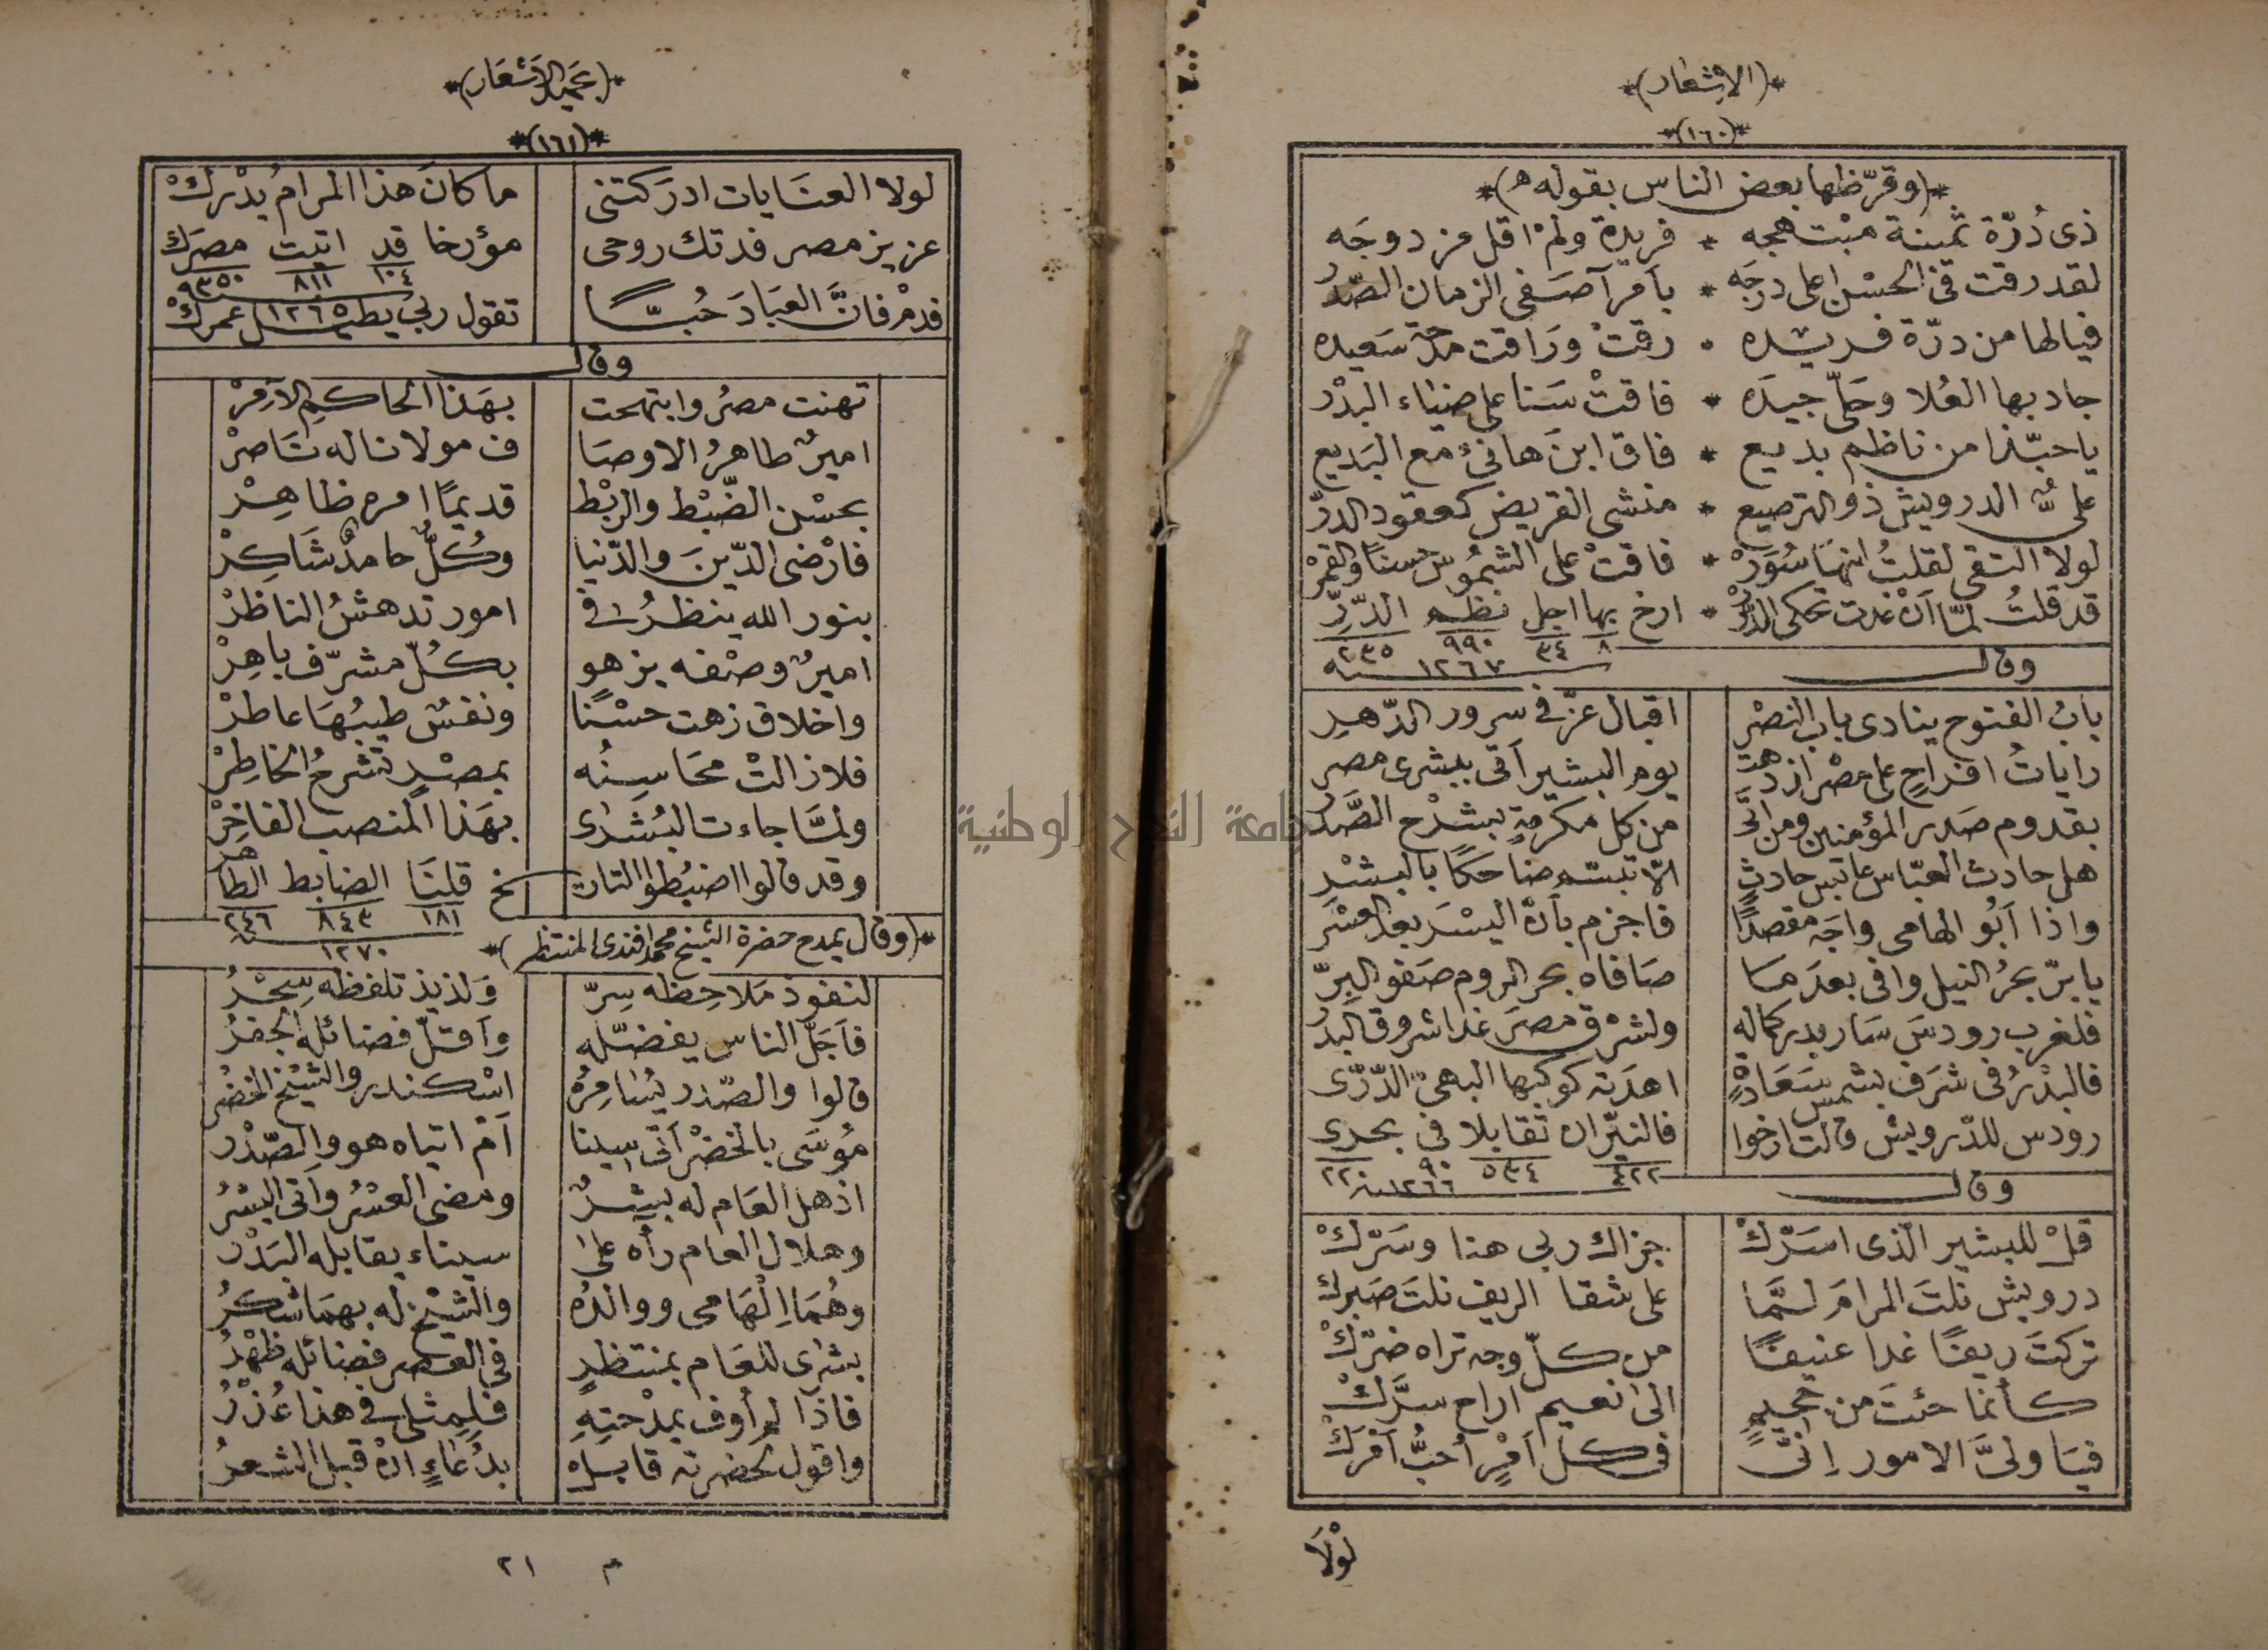 *(الاشعار)*
*(١٦٠)*
*(وقرّظها بعض الناس بقوله)*
ذى دُرّة ثمينة مبتهجه * فريدة ولم اقل مزدوجَه
لقد رقت فى الحسْن اعلى درجَه * بامر آصَفى الزمان الصّدرُ
فيالها من درّة فريده * رقتْ ورَاقت مدحة سَعيده
جاد بها العُلا وحَلّى جيدَه * فاقتْ سَنا على ضياء البدْرُ
ياحبّذا من ناظم بديع * فاق ابنَ هانئ مع البَديع
علىُّ الدرويش ذو الترصيع * منشى القريض كعقود الدرّ
لولا التقى لقلتُ انهَا سُوَرْ * فاقتْ على الشمُوس حسنًا والقمرْ
قد قلتُ لمّا اَنْ غدت تحكى الدُّررْ * ارخ بها اجل نظم الدّررِ
٨ ٣٤ ٩٩٠ ٢٣٥
١٢٦٧ سنه
وقال
بابُ الفتوح ينادى باب النصْرِ اقبال عزّ فى سرور الدّهر
راياتُ افراحٍ على مصْر ازدهت يوم البشير اَتى ببشرى مصر
بقدوم صَدر المؤمنين ومن اتَى من كل مكرمةٍ بشرْح الصَّدْرُ
هل حادث العبّاس عابس حادثٍ الّا تبسّم ضاحكًا بالبشْرِ
واذا اَبُو الهامى واجَه مقصدًا فاجزم بأنّ اليسْرَ بعد العسْرِ
يا برّ بحرُ النيل وافى بعدَ ما صَافاه بحر الروم صَفو البِرِّ
فلغرب رودسَ سَار بدر كماله ولشرْق مصرَ غدا شروق البدْرُ
فالبدْرُ فى شرَف بشمس سَعَادةٍ اهدَته كوكبها البهىّ الدّرّى
رودس للدّرويش قالت ارخوا فالنيّران تقابلا فى بحرى
٤٢٢ ٥٣٤ ٩٠ ٢٢٠
١٢٦٦ سنه
وقال
قلْ للبشير الّذى اسَرّكْ جزاك ربى هنا وسَرّكْ
درويش نلتَ المرامَ لمَّا على شقا الريف نلتَ صَبركْ
تركتَ ريفًا غدا عنيفًا من كلّ وجه تراه ضرّكْ
كأنما جئتَ من جحيمٍ الى نعيم اراح سرَّكْ
فيَا ولىَّ الامور اِنّى فى كلّ اَمْرٍ اُحبُّ اَمْركْ
لَوْلَا
*(عَميد الاَشعَار)*
*(١٦١)*
لولا العنَايات ادرَكتنى ما كانَ هذا المرامُ يدْركْ
عزيز مصر فدتك روحى مؤرخا قد اتيت مصرَكْ
١٠٤ ٨١١ ٣٥٠
١٢٦٥
فدمْ فانَّ العبَادَ حُبًّا تقول ربى يطيل عمركْ
وقال
تهنت مصرُ وابتهجت بهَذا الحاكم الآمرْ
اميرٌ طاهرُ الاوصَا ف مولانا له نَاصرْ
بحسْن الضّبْط والربْط قديمًا امره ظاهِرْ
فارْضى الدّينَ والدّنيا وكُلٌّ حامدٌ شَاكِرْ
بنور الله ينظرُ فى امور تدهشُ الناظرْ
اميرٌ وصْفه يزهو بكُلّ مشرّف باهِرْ
واخلاق زهت حسْنًا ونفسٌ طيبُهَا عاطرْ
فلا زالتْ محَاسِنُه بمصْرٍ تشرحُ الخاطِرْ
ولمَّا جاءت البُشرى بهَذا المنصب الفاخِرْ
وقد قالوا اضبُطوا التاريخ قلنَا الضابط الطاهر
١٨١ ٨٤٣ ٢٤٦
١٢٧٠
*(وقال يمدح حضرة الشيخ محمد افندى المنتظر)*
لنفوذ مَلاحِظه سِرّ وَلذيذ تلفظه سِحْرُ
فاَجَلّ الناس يفضّله وَاَقلّ فضائله الجفرُ
قالوا والصّدر يُسَامِرُهُ اسْكندر والشيْخ الخضرُ
مُوسَى بالخضْر اَتى سينا اَمْ اتياه هو والصّدْرُ
اذ هلّ العَام له بِشْرٌ ومضى العسْرُ واَتى اليسْرُ
وهلال العام رآه علىٰ سيناء يقابله البَدْرُ
وهُمَا اِلْهَامى ووالدُهُ والشيْخ له بهمَا شكرُ
بشرٰى للعَام بمنتظرٍ فى العصر فضائله ظهْرُ
فاذا لم أوف بمدْحتِهِ فلِمِثلى فى هذا عُذْرُ
واقول لحضرته قابِلْه بدُعَاءٍ انْ قبل الشعرُ
م ٢١
جامعة النجاح الوطنية